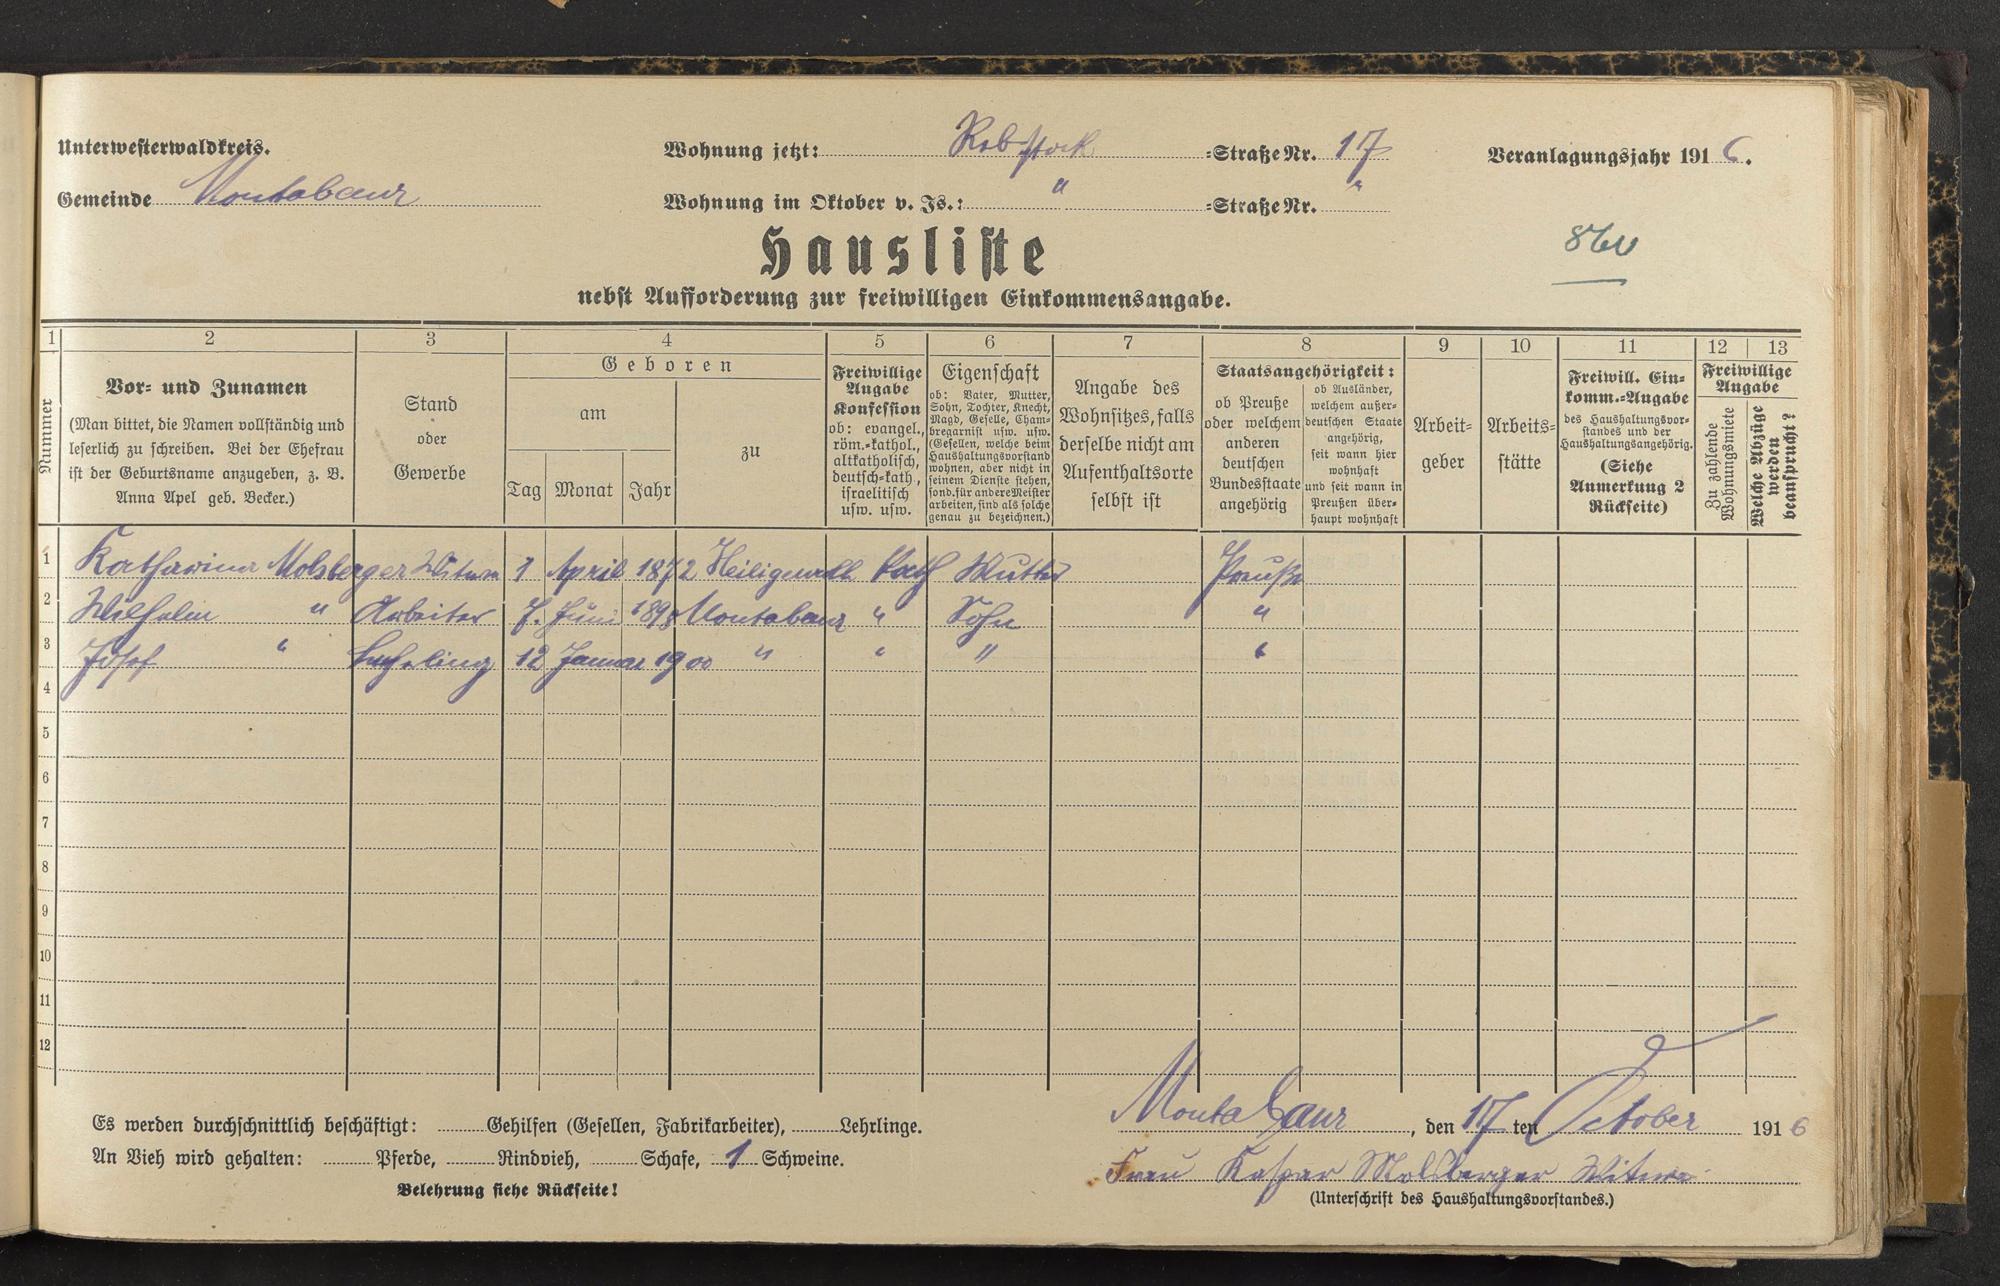 Unterwesterwaldkreis.
Wohnung jetzt: Rebstock =Straße Nr. 17
Veranlagungsjahr 1916.
Gemeinde Montabaur
Wohnung im Oktober v. Js.: " =Straße Nr. "
Hausliste
nebst Aufforderung zur freiwilligen Einkommensangabe.
1 2 3 4 5 6 7 8 9 10 11 12 13
Nummer
Vor= und Zunamen
(Man bittet, die Namen vollständig und
leserlich zu schreiben. Bei der Ehefrau
ist der Geburtsname anzugeben, z. B.
Anna Apel geb. Becker.)
Stand
oder
Gewerbe
Geboren
am
Tag Monat Jahr
zu
Freiwillige
Angabe
Konfession
ob: evangel.,
röm.=kathol.,
altkatholisch,
deutsch=kath.,
israelitisch
usw. usw.
Eigenschaft
ob: Vater, Mutter,
Sohn, Tochter, Knecht,
Magd, Geselle, Cham=
bregarnist usw. usw.
(Gesellen, welche beim
Haushaltungsvorstand
wohnen, aber nicht in
seinem Dienste stehen,
sond. für andere Meister
arbeiten, sind als solche
genau zu bezeichnen.)
Angabe des
Wohnsitzes, falls
derselbe nicht am
Aufenthaltsorte
selbst ist
Staatsangehörigkeit:
ob Preuße
oder welchem
anderen
deutschen
Bundesstaate
angehörig
ob Ausländer,
welchem außer=
deutschen Staate
angehörig,
seit wann hier
wohnhaft
und seit wann in
Preußen über=
haupt wohnhaft
Arbeit=
geber
Arbeits=
stätte
Freiwill. Ein=
komm.=Angabe
des Haushaltungsvor=
standes und der
Haushaltungsangehörig.
(Siehe
Anmerkung 2
Rückseite)
Freiwillige
Angabe
Zu zahlende
Wohnungsmiete
Welche Abzüge
werden
beansprucht?
1 Katharina Molsberger Witwe 1 April 1872 Kath Mutter Preuße
2 Wilhelm " Arbeiter 7. Juni 1898 Montabaur " Sohn "
3 Josef " Lehrling 12 Januar 1900 " " " "
4
5
6
7
8
9
10
11
12
Es werden durchschnittlich beschäftigt: Gehilfen (Gesellen, Fabrikarbeiter), Lehrlinge.
An Vieh wird gehalten: Pferde, Rindvieh, Schafe, 1 Schweine.
Belehrung siehe Rückseite!
Montabaur, den 17 ten October 1916
Frau Kaspar Molsberger Witwe
(Unterschrift des Haushaltungsvorstandes.)